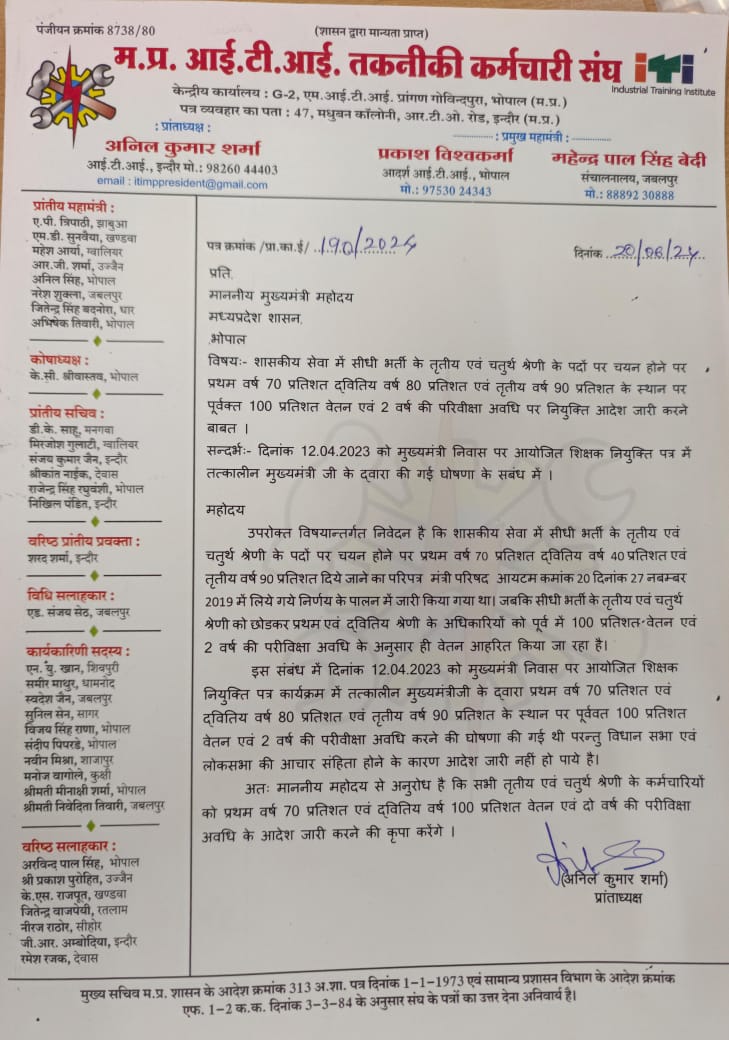 पंजीयन क्रमांक 8738/80
(शासन द्वारा मान्यता प्राप्त)
म.प्र. आई.टी.आई. तकनीकी कर्मचारी संघ
iTi
Industrial Training Institute
केन्द्रीय कार्यालय : G-2, एम.आई.टी.आई. प्रांगण गोविन्दपुरा, भोपाल (म.प्र.)
पत्र व्यवहार का पता : 47, मधुबन कॉलोनी, आर.टी.ओ. रोड, इन्दौर (म.प्र.)
: प्रांताध्यक्ष :
अनिल कुमार शर्मा
आई.टी.आई., इन्दौर मो.: 98260 44403
email : itimppresident@gmail.com
: प्रमुख महामंत्री :
प्रकाश विश्वकर्मा
आदर्श आई.टी.आई., भोपाल
मो.: 97530 24343
महेन्द्र पाल सिंह बेदी
संचालनालय, जबलपुर
मो.: 88892 30888
प्रांतीय महामंत्री :
ए.पी. त्रिपाठी, झाबुआ
एम.डी. सुनवैया, खण्डवा
महेश आर्या, ग्वालियर
आर.जी. शर्मा, उज्जैन
अनिल सिंह, भोपाल
नरेश शुक्ला, जबलपुर
जितेन्द्र सिंह बदनोरा, धार
अभिषेक तिवारी, भोपाल
कोषाध्यक्ष :
के.सी. श्रीवास्तव, भोपाल
प्रांतीय सचिव :
डी.के. साहू, मनगवा
मिरजोश गुलाटी, ग्वालियर
संजय कुमार जैन, इन्दौर
श्रीकांत नाईक, देवास
राजेन्द्र सिंह रघुवंशी, भोपाल
निखिल पंडित, इन्दौर
वरिष्ठ प्रांतीय प्रवक्ता :
शरद शर्मा, इन्दौर
विधि सलाहकार :
एड. संजय सेठ, जबलपुर
कार्यकारिणी सदस्य :
एन. यु. खान, शिवपुरी
समीर माथुर, धामनोद
स्वदेश जैन, जबलपुर
सुनिल सेन, सागर
विजय सिंह राणा, भोपाल
संदीप पिपरडे, भोपाल
नवीन मिश्रा, शाजापुर
मनोज वागोले, कुक्षी
श्रीमती मीनाक्षी शर्मा, भोपाल
श्रीमती निवेदिता तिवारी, जबलपुर
वरिष्ठ सलाहकार :
अरविन्द पाल सिंह, भोपाल
श्री प्रकाश पुरोहित, उज्जैन
के.एस. राजपूत, खण्डवा
जितेन्द्र वाजपेयी, रतलाम
नीरज राठोर, सीहोर
जी.आर. अम्बोदिया, इन्दौर
रमेश रजक, देवास
पत्र क्रमांक /प्रा.का.ई/ 190/2024
दिनांक 20/06/24
प्रति,
माननीय मुख्यमंत्री महोदय
मध्यप्रदेश शासन,
भोपाल
विषयः- शासकीय सेवा में सीधी भर्ती के तृतीय एवं चतुर्थ श्रेणी के पदों पर चयन होने पर
प्रथम वर्ष 70 प्रतिशत द्वितिय वर्ष 80 प्रतिशत एवं तृतीय वर्ष 90 प्रतिशत के स्थान पर
पूर्वक्त 100 प्रतिशत वेतन एवं 2 वर्ष की परिवीक्षा अवधि पर नियुक्ति आदेश जारी करने
बाबत ।
सन्दर्भः- दिनांक 12.04.2023 को मुख्यमंत्री निवास पर आयोजित शिक्षक नियुक्ति पत्र में
तत्कालीन मुख्यमंत्री जी के द्वारा की गई घोषणा के सबंध में ।
महोदय
उपरोक्त विषयान्तर्गत निवेदन है कि शासकीय सेवा में सीधी भर्ती के तृतीय एवं
चतुर्थ श्रेणी के पदों पर चयन होने पर प्रथम वर्ष 70 प्रतिशत द्वितिय वर्ष 40 प्रतिशत एवं
तृतीय वर्ष 90 प्रतिशत दिये जाने का परिपत्र मंत्री परिषद आयटम कमांक 20 दिनांक 27 नबम्बर
2019 में लिये गये निर्णय के पालन में जारी किया गया था। जबकि सीधी भर्ती के तृतीय एवं चतुर्थ
श्रेणी को छोडकर प्रथम एवं द्वितिय श्रेणी के अधिकारियों को पूर्व में 100 प्रतिशत वेतन एवं
2 वर्ष की परीविक्षा अवधि के अनुसार ही वेतन आहरित किया जा रहा है।
इस संबंध में दिनांक 12.04.2023 को मुख्यमंत्री निवास पर आयोजित शिक्षक
नियुक्ति पत्र कार्यक्रम में तत्कालीन मुख्यमंत्रीजी के द्वारा प्रथम वर्ष 70 प्रतिशत एवं
द्वितिय वर्ष 80 प्रतिशत एवं तृतीय वर्ष 90 प्रतिशत के स्थान पर पूर्ववत 100 प्रतिशत
वेतन एवं 2 वर्ष की परीवीक्षा अवधि करने की घोषणा की गई थी परन्तु विधान सभा एवं
लोकसभा की आचार संहिता होने के कारण आदेश जारी नहीं हो पाये है।
अतः माननीय महोदय से अनुरोध है कि सभी तृतीय एवं चतुर्थ श्रेणी के कर्मचारियों
को प्रथम वर्ष 70 प्रतिशत एवं द्वितिय वर्ष 100 प्रतिशत वेतन एवं दो वर्ष की परीविक्षा
अवधि के आदेश जारी करने की कृपा करेंगे ।
(अनिल कुमार शर्मा)
प्रांताध्यक्ष
मुख्य सचिव म.प्र. शासन के आदेश क्रमांक 313 अ.शा. पत्र दिनांक 1-1-1973 एवं सामान्य प्रशासन विभाग के आदेश क्रमांक
एफ. 1-2 क.क. दिनांक 3-3-84 के अनुसार संघ के पत्रों का उत्तर देना अनिवार्य है।